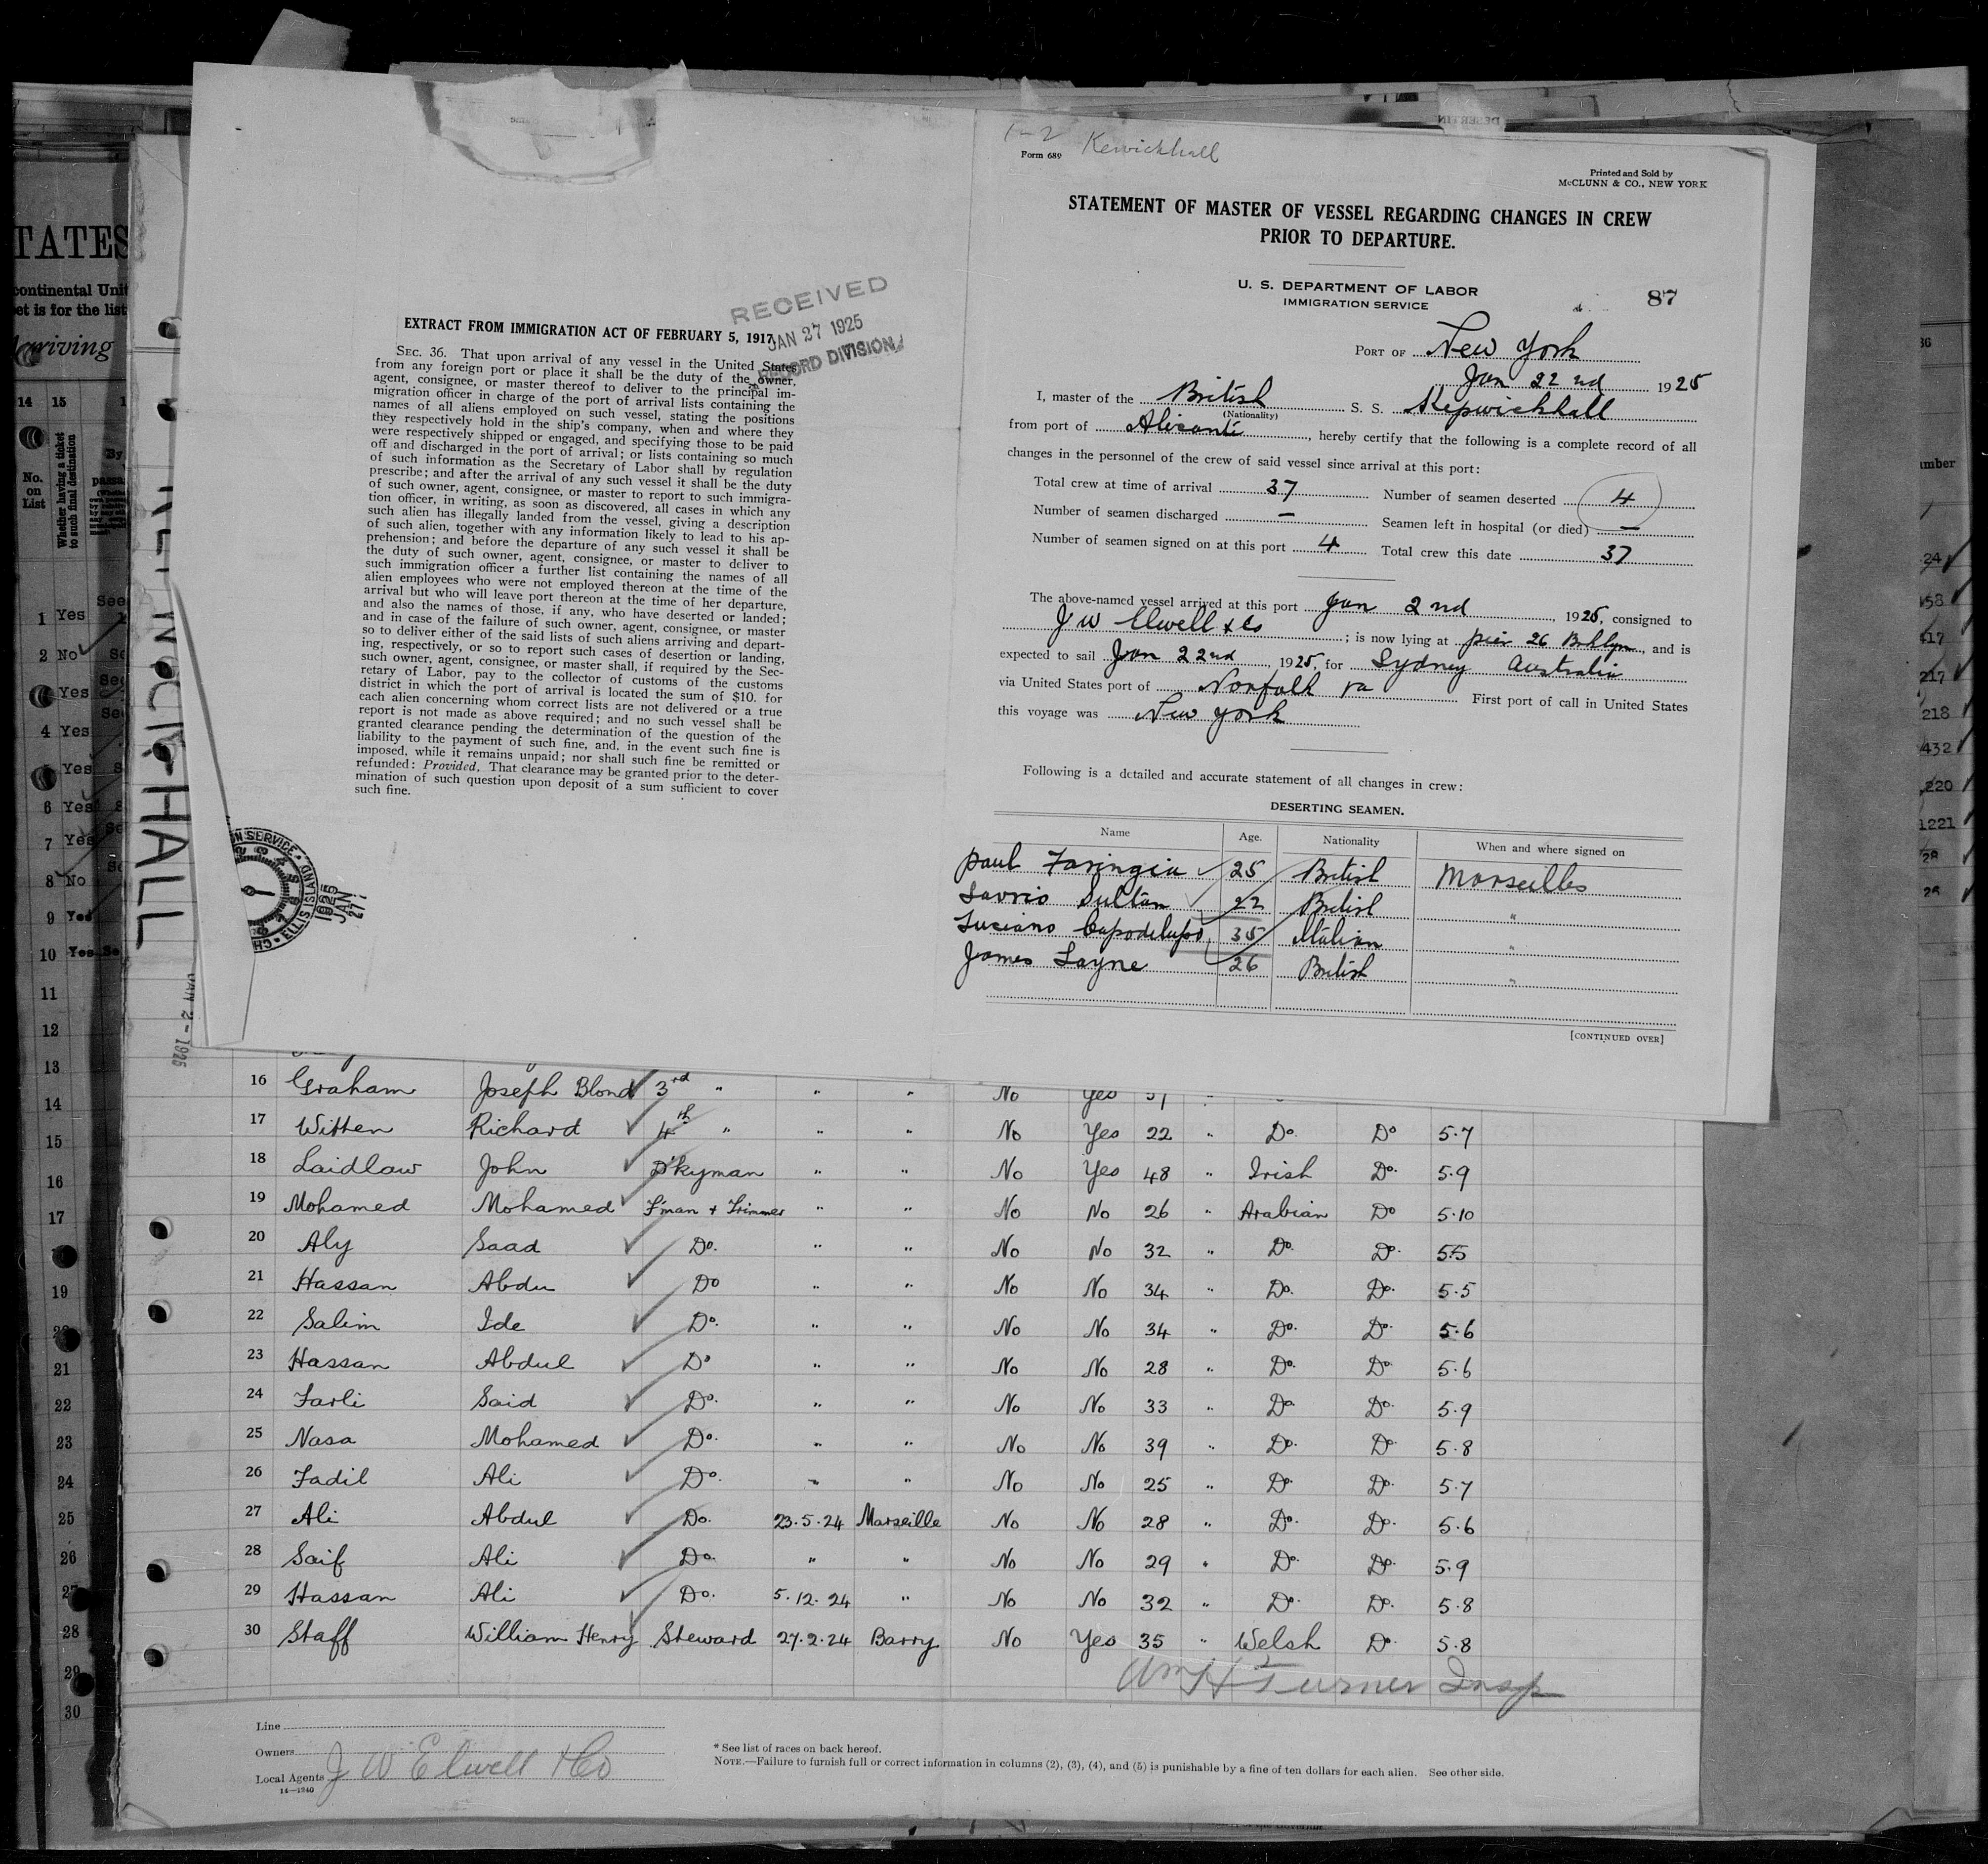 TATES
continental Unit
et is for the list
14 15
No.
on
List
Whether having a ticket
to such final destination
By
1 Yes See
2 No
Yes See
4 Yes See
Yes
6 Yes
7 Yes
8 No
9 Yes
10 Yes Se
11
12
13
14
15
16
17
19
21
22
23
24
25
26
27
28
29
30
HALL
JAN 2 - 1925
EXTRACT FROM IMMIGRATION ACT OF FEBRUARY 5, 1917.
RECEIVED
JAN 27 1925
RECORD DIVISION
SEC. 36. That upon arrival of any vessel in the United States
from any foreign port or place it shall be the duty of the owner,
agent, consignee, or master thereof to deliver to the principal im-
migration officer in charge of the port of arrival lists containing the
names of all aliens employed on such vessel, stating the positions
they respectively hold in the ship's company, when and where they
were respectively shipped or engaged, and specifying those to be paid
off and discharged in the port of arrival; or lists containing so much
of such information as the Secretary of Labor shall by regulation
prescribe; and after the arrival of any such vessel it shall be the duty
of such owner, agent, consignee, or master to report to such immigra-
tion officer, in writing, as soon as discovered, all cases in which any
such alien has illegally landed from the vessel, giving a description
of such alien, together with any information likely to lead to his ap-
prehension; and before the departure of any such vessel it shall be
the duty of such owner, agent, consignee, or master to deliver to
such immigration officer a further list containing the names of all
alien employees who were not employed thereon at the time of the
arrival but who will leave port thereon at the time of her departure,
and also the names of those, if any, who have deserted or landed;
and in case of the failure of such owner, agent, consignee, or master
so to deliver either of the said lists of such aliens arriving and depart-
ing, respectively, or so to report such cases of desertion or landing,
such owner, agent, consignee, or master shall, if required by the Sec-
retary of Labor, pay to the collector of customs of the customs
district in which the port of arrival is located the sum of $10. for
each alien concerning whom correct lists are not delivered or a true
report is not made as above required; and no such vessel shall be
granted clearance pending the determination of the question of the
liability to the payment of such fine, and, in the event such fine is
imposed, while it remains unpaid; nor shall such fine be remitted or
refunded: Provided, That clearance may be granted prior to the deter-
mination of such question upon deposit of a sum sufficient to cover
such fine.
ELLIS ISLAND
1925
JAN
27
1-2 Kewickhall
Form 689
Printed and Sold by
McCLUNN & CO., NEW YORK
STATEMENT OF MASTER OF VESSEL REGARDING CHANGES IN CREW
PRIOR TO DEPARTURE.
U. S. DEPARTMENT OF LABOR
IMMIGRATION SERVICE
87
PORT OF New York
Jan 22nd 1925
I, master of the British S. S. Kepwickhall
(Nationality)
from port of Alicante, hereby certify that the following is a complete record of all
changes in the personnel of the crew of said vessel since arrival at this port:
Total crew at time of arrival 37 Number of seamen deserted 4
Number of seamen discharged — Seamen left in hospital (or died) —
Number of seamen signed on at this port 4 Total crew this date 37
The above-named vessel arrived at this port Jan 2nd, 1925, consigned to
J W Elwell & Co; is now lying at pier 26 Bklyn, and is
expected to sail Jan 22nd, 1925, for Sydney Australia
via United States port of Norfolk va First port of call in United States
this voyage was New York
Following is a detailed and accurate statement of all changes in crew:
DESERTING SEAMEN.
Name Age. Nationality When and where signed on
Paul Faringia 25 British Marseilles
Savrio Sultan 22 British "
Luciano Capodelupo 35 Italian "
James Layne 26 British "
[CONTINUED OVER]
16 Graham Joseph Blond 3rd " " " No Yes
17 Witten Richard 4th " " " No Yes 22 " Do Do 5.7
18 Laidlaw John D'kyman " " No Yes 48 " Irish Do. 5.9
19 Mohamed Mohamed F'man + Trimmer " " No No 26 " Arabian Do 5.10
20 Aly Saad Do. " " No No 32 " Do. Do. 5.5
21 Hassan Abdu Do " " No No 34 " Do. Do. 5.5
22 Salim Ide Do. " " No No 34 " Do. Do. 5.6
23 Hassan Abdul Do " " No No 28 " Do. Do 5.6
24 Farli Said Do. " " No No 33 " Do. Do. 5.9
25 Nasa Mohamed Do. " " No No 39 " Do. Do 5.8
26 Fadil Ali Do. " " No No 25 " Do. Do. 5.7
27 Ali Abdul Do. 23.5.24 Marseille No No 28 " Do. Do. 5.6
28 Saif Ali Do. " " No No 29 " Do. Do. 5.9
29 Hassan Ali Do. 5.12.24 " No No 32 " Do. Do. 5.8
30 Staff William Henry Steward 27.2.24 Barry No Yes 35 " Welsh Do. 5.8
Wm H Turner Insp
Line
Owners
Local Agents J W Elwell & Co
14—1240
* See list of races on back hereof.
NOTE.—Failure to furnish full or correct information in columns (2), (3), (4), and (5) is punishable by a fine of ten dollars for each alien. See other side.
217
218
432
220
1221